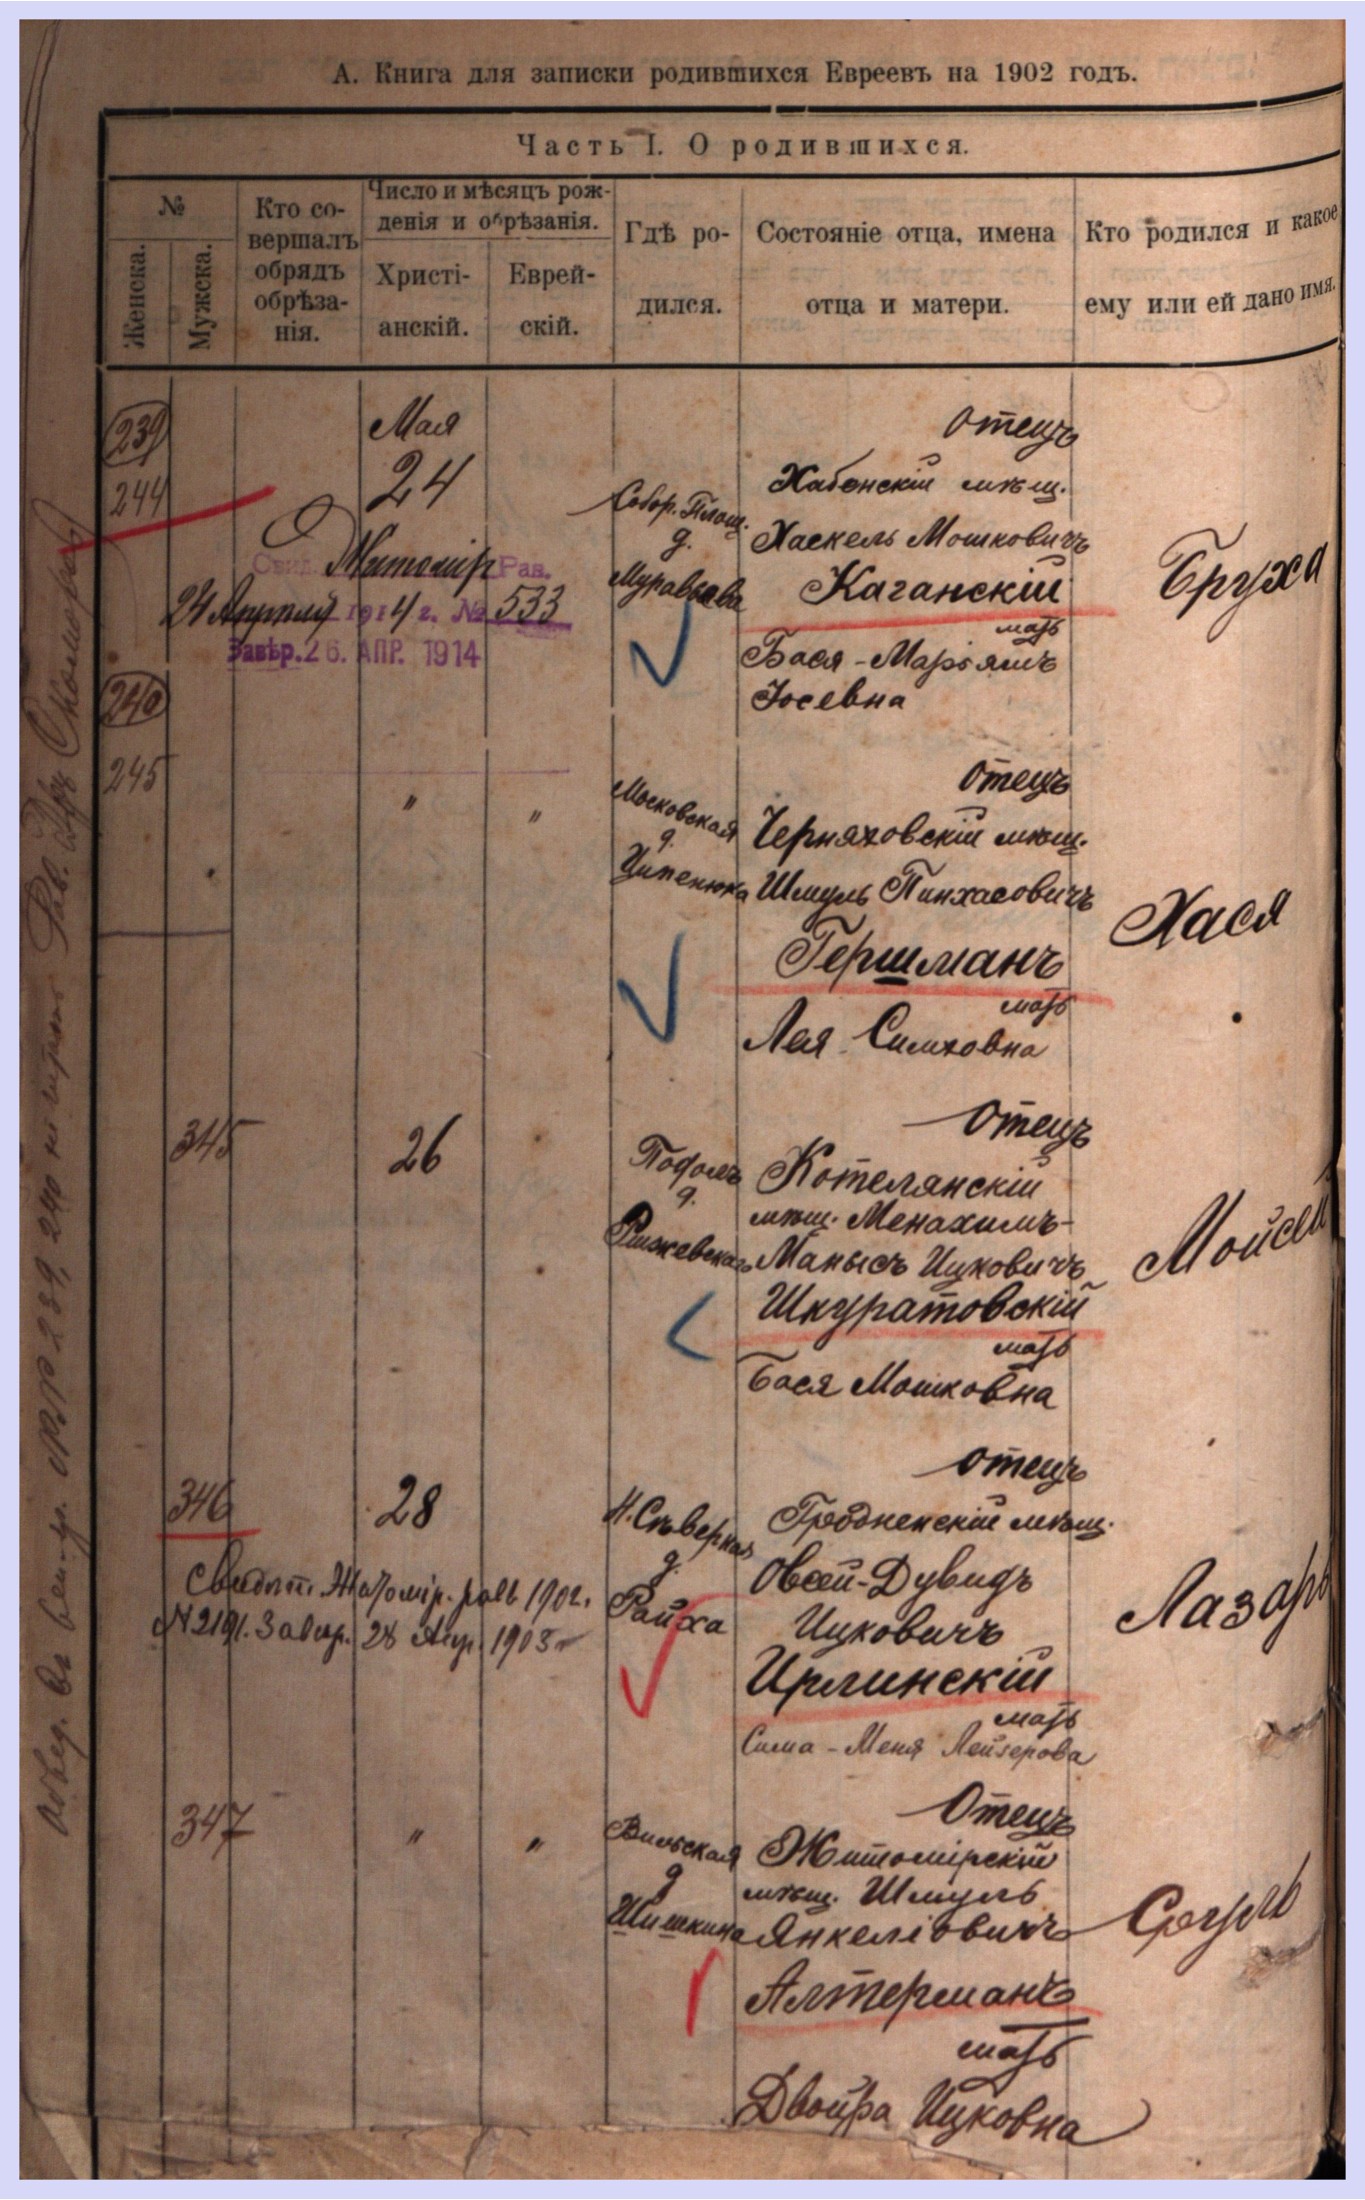 А. Книга для записки родившихся Евреевъ на 1902 годъ.
Часть I. О родившихся.
№
Женска.
Мужска.
Кто со-
вершалъ
обрядъ
обрѣза-
нія.
Число и мѣсяцъ рож-
денія и обрѣзанія.
Христі-
анскій.
Еврей-
скій.
Гдѣ ро-
дился.
Состояніе отца, имена
отца и матери.
Кто родился и какое
ему или ей дано имя.
239
244
Мая
24
Свид. Житомір Рав.
24 Апрѣля 1914 г. № 533
Завѣр. 26. АПР. 1914
Собор. Площ.
д.
Муравьева
Отецъ
Хабенскій мѣщ.
Хаскель Мошковичъ
Каганскій
мать
Бася-Маріямъ
Іосевна
Бруха
240
245
"
"
Московская
д.
Цитенюка
Отецъ
Черняховскій мѣщ.
Шмуль Пинхасовичъ
Гершманъ
мать
Лея Симховна
Хася
345
26
Подолъ
д.
Отецъ
Котелянскій
мѣщ. Менахимъ-
Манысъ Ицковичъ
Шкуратовскій
мать
Бася Мошковна
Мойсей
346
28
Свидѣт. Житомір. рав. 1902.
N 2191. Завѣр. 28 Апр. 1903 г
Н. Сѣверная
д.
Райха
Отецъ
Гродненскій мѣщ.
Овсей-Дувидъ
Ицковичъ
Ирлинскій
мать
Сима-Меня Лейзерова
Лазарь
347
"
"
Вильская
д
Шишкина
Отецъ
Житомірскій
мѣщ. Шмуль
Янкеліовичъ
Алтерманъ
мать
Двойра Ицковна
Сруль